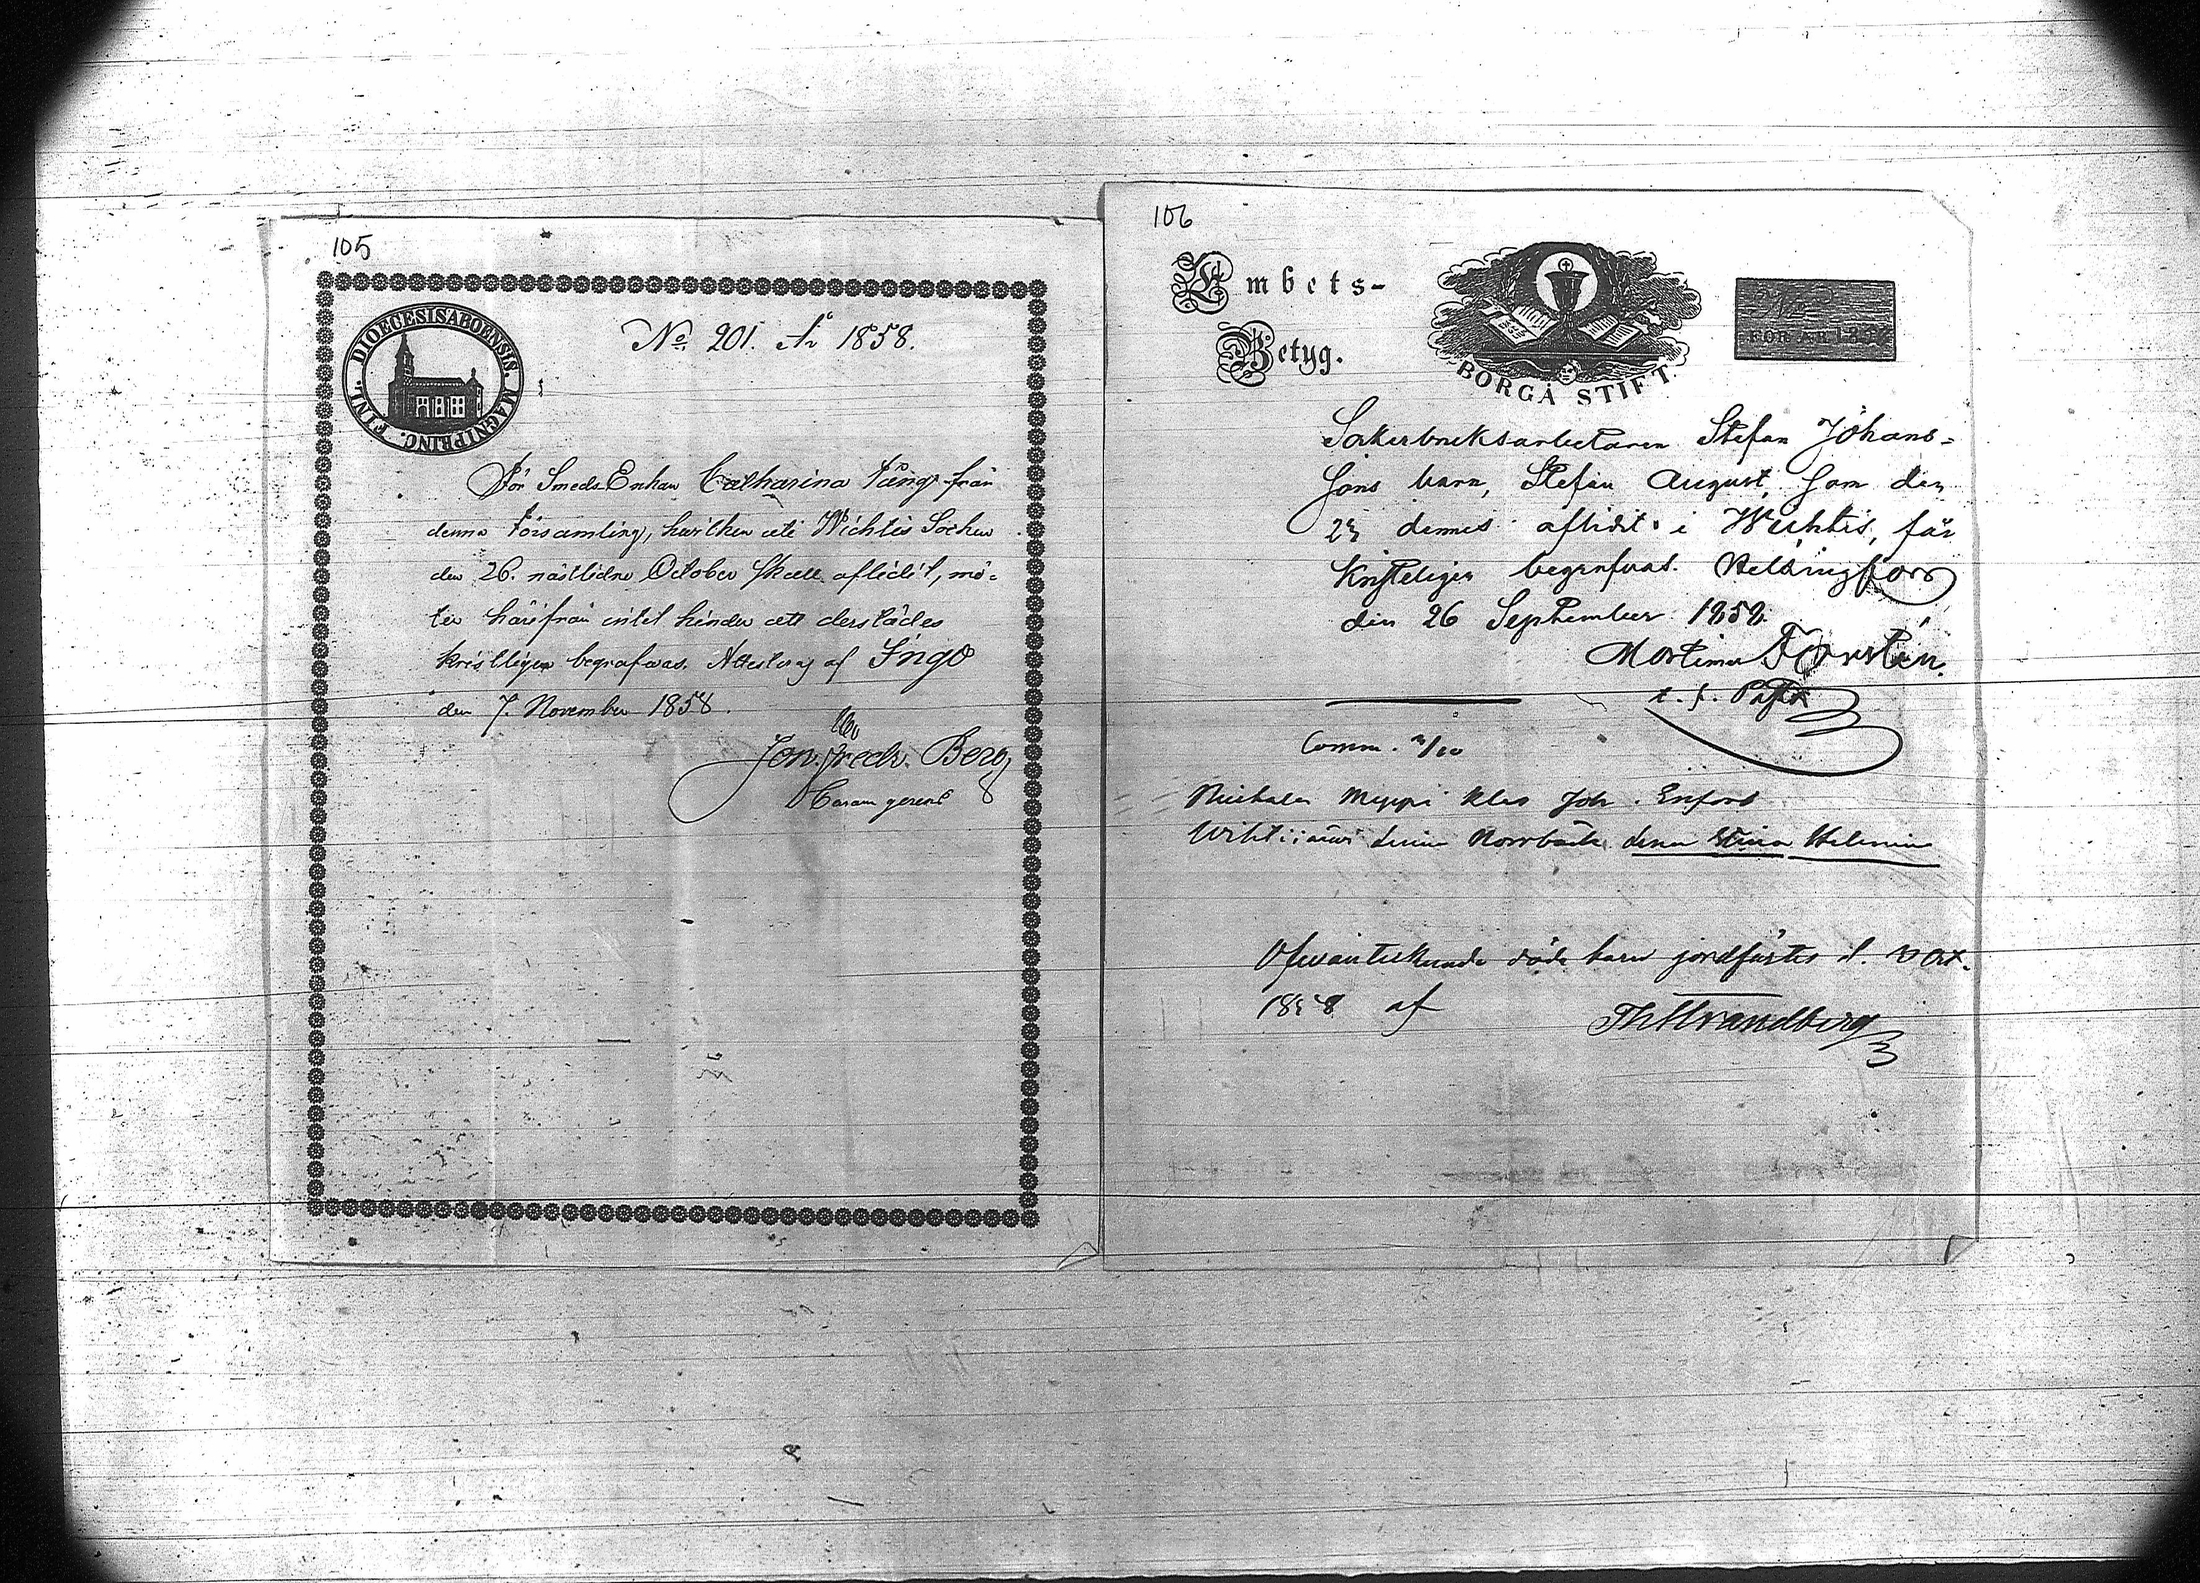 105
DIOECESIS ABOENSIS. MAGNI PRINC. FINL.
No. 201. År 1858.
För Smeds Enkan Catharina Täng från
denna Församling, hwilken uti Wichtis Socken
den 26. nästlidne October skall aflidit, mö-
ter härifrån intet hinder att derstädes
kristligen begrafwas. Attesteras af Ingo
den 7. November 1858.
Jon. Fredr. Berg,
Curam gerens
106
Embets-
Betyg.
BORGÅ STIFT
FÖR ÅR 18
Sockerbruksarbetaren Stefan Johans-
sons barn, Stefan August, som den
23 dennes aflidit i Wichtis, får
Kristeligen begrafwas. Helsingfors
den 26 September 1858.
Mortimer Forstén.
t. f. Past
Comm. /10
Joh.
Norrbacka
Ofwanteknade döda barn jordfästes d. Oct.
1858 af
Th Strandberg